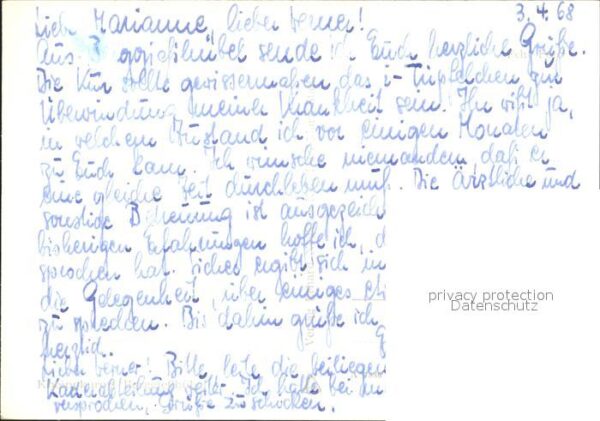 Liebe Marianne, lieber Werner! 3.4.68
Aus Berggießhübel sende ich Euch herzliche Grüße.
Die Kur sollte gewissermaßen das i-Tüpfelchen zur
Überwindung meiner Krankheit sein. Ihr wißt ja,
in welchem Zustand ich vor einigen Monaten
zu Euch kam. Ich wünsche niemandem, daß er
eine gleiche Zeit durchleben muß. Die Ärztliche und
sonstige Betreuung ist ausgezeich
bisherigen Erfahrungen hoffe ich, d
sprochen hat. Sicher ergibt sich in
die Gelegenheit, über einiges
zu sprechen. Bis dahin grüße ich
herzlich.
Lieber Werner! Bitte leite die beiliegen
weiter. Ich hatte bei
versprochen, Grüße zu schicken.
privacy protection
Datenschutz